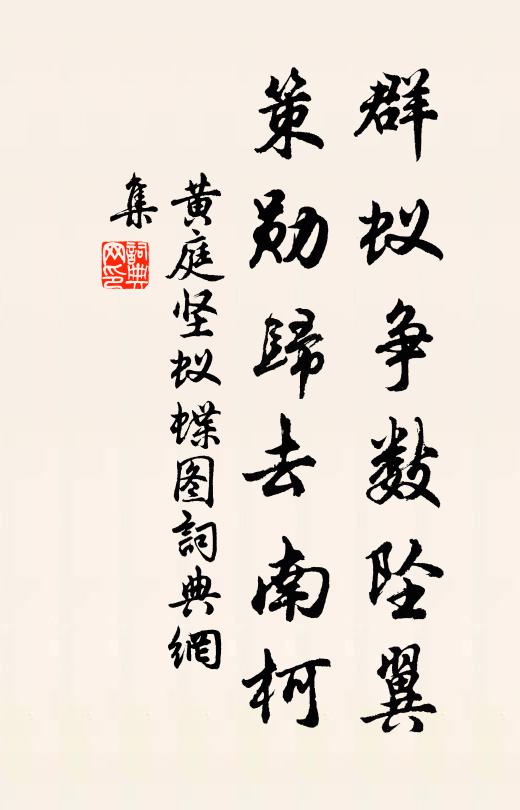 群蚁争数坠翼
策勋歸去南柯
黄庭坚蚁蝶图詞典網
集
詞典网印